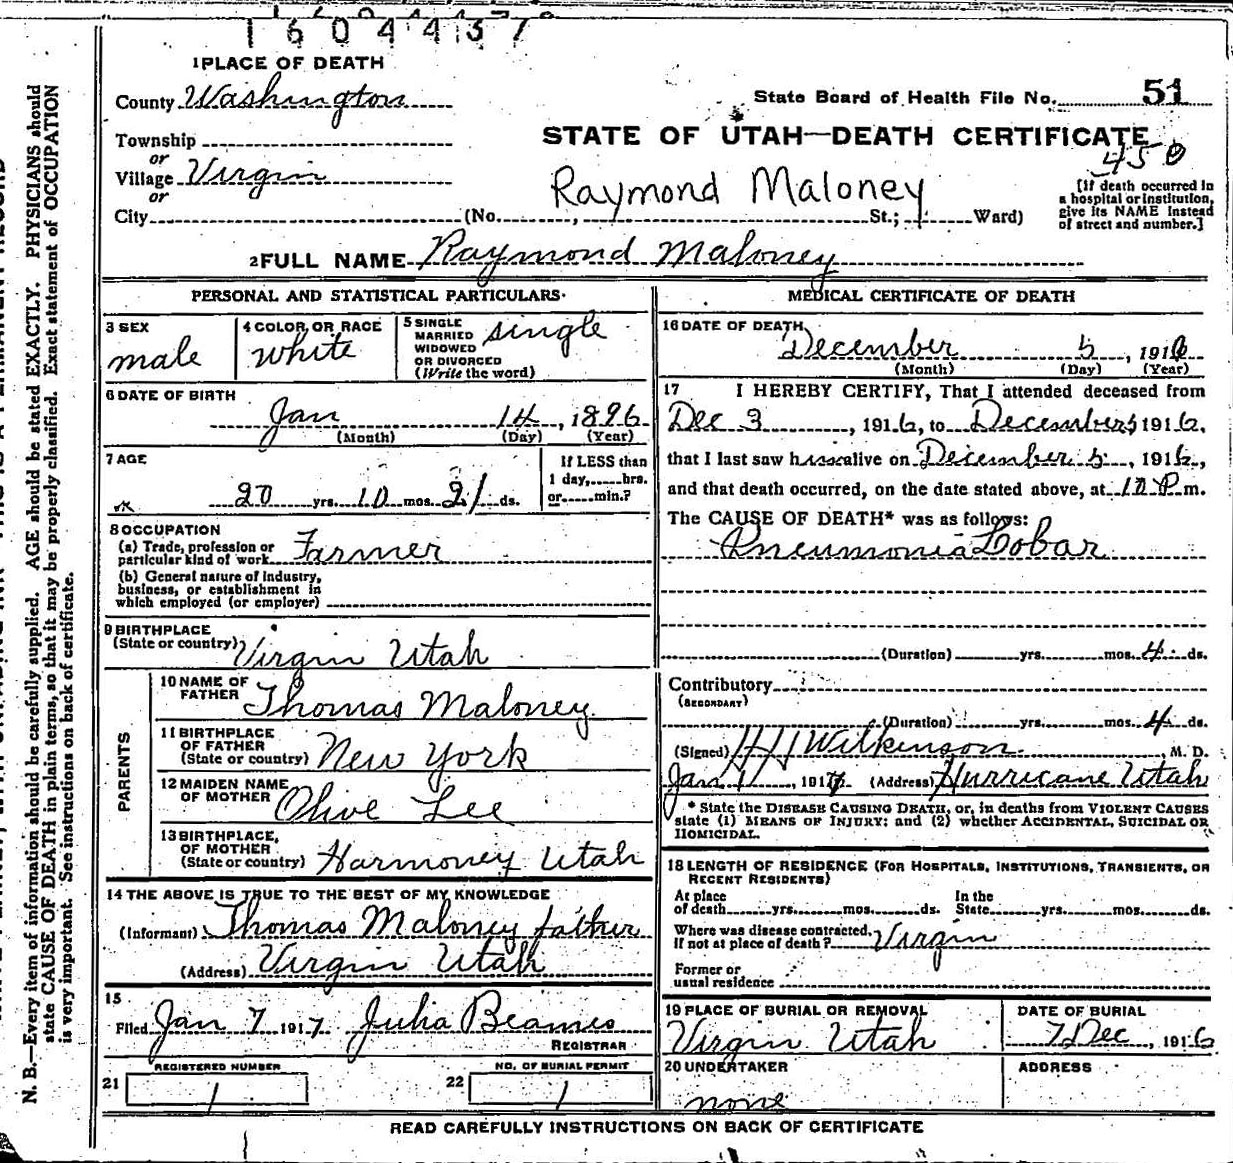 1604437
1 PLACE OF DEATH
County Washington
State Board of Health File No. 51
Township
STATE OF UTAH—DEATH CERTIFICATE
or
Village Virgin
450
or
Raymond Maloney
[If death occurred in
a hospital or institution,
give its NAME instead
of street and number.]
City (No. , St.; Ward)
2 FULL NAME Raymond Maloney
PERSONAL AND STATISTICAL PARTICULARS
3 SEX
male
4 COLOR OR RACE
white
5 SINGLE
MARRIED
WIDOWED
OR DIVORCED
(Write the word)
single
6 DATE OF BIRTH
Jan 14, 1896
(Month) (Day) (Year)
7 AGE
20 yrs. 10 mos. 21 ds.
If LESS than
1 day, hrs.
or min.?
8 OCCUPATION
(a) Trade, profession or
particular kind of work Farmer
(b) General nature of industry,
business, or establishment in
which employed (or employer)
9 BIRTHPLACE
(State or country) Virgin Utah
PARENTS
10 NAME OF
FATHER Thomas Maloney
11 BIRTHPLACE
OF FATHER
(State or country) New York
12 MAIDEN NAME
OF MOTHER Olive Lee
13 BIRTHPLACE,
OF MOTHER
(State or country) Harmoney Utah
14 THE ABOVE IS TRUE TO THE BEST OF MY KNOWLEDGE
(Informant) Thomas Maloney father
(Address) Virgin Utah
15
Filed Jan 7 1917 Julia Beames
REGISTRAR
21 REGISTERED NUMBER
1
22 NO. OF BURIAL PERMIT
1
MEDICAL CERTIFICATE OF DEATH
16 DATE OF DEATH
December 5, 1916
(Month) (Day) (Year)
17 I HEREBY CERTIFY, That I attended deceased from
Dec 3, 1916, to December 5 1916,
that I last saw him alive on December 5, 1916,
and that death occurred, on the date stated above, at 10 P m.
The CAUSE OF DEATH* was as follows:
Pneumonia Lobar
(Duration) yrs. mos. 4 ds.
Contributory
(SECONDARY)
(Duration) yrs. mos. 4 ds.
(Signed) H H Wilkinson M. D.
Jan 1, 1917 (Address) Hurricane Utah
* State the DISEASE CAUSING DEATH, or, in deaths from VIOLENT CAUSES
state (1) MEANS OF INJURY; and (2) whether ACCIDENTAL, SUICIDAL OR
HOMICIDAL.
18 LENGTH OF RESIDENCE (FOR HOSPITALS, INSTITUTIONS, TRANSIENTS, OR
RECENT RESIDENTS)
At place
of death yrs. mos. ds.
In the
State yrs. mos. ds.
Where was disease contracted,
If not at place of death? Virgin
Former or
usual residence
19 PLACE OF BURIAL OR REMOVAL
Virgin Utah
DATE OF BURIAL
7 Dec, 1916
20 UNDERTAKER
none
ADDRESS
READ CAREFULLY INSTRUCTIONS ON BACK OF CERTIFICATE
N. B.—Every item of information should be carefully supplied. AGE should be stated EXACTLY. PHYSICIANS should
state CAUSE OF DEATH in plain terms, so that it may be properly classified. Exact statement of OCCUPATION
is very important. See instructions on back of certificate.